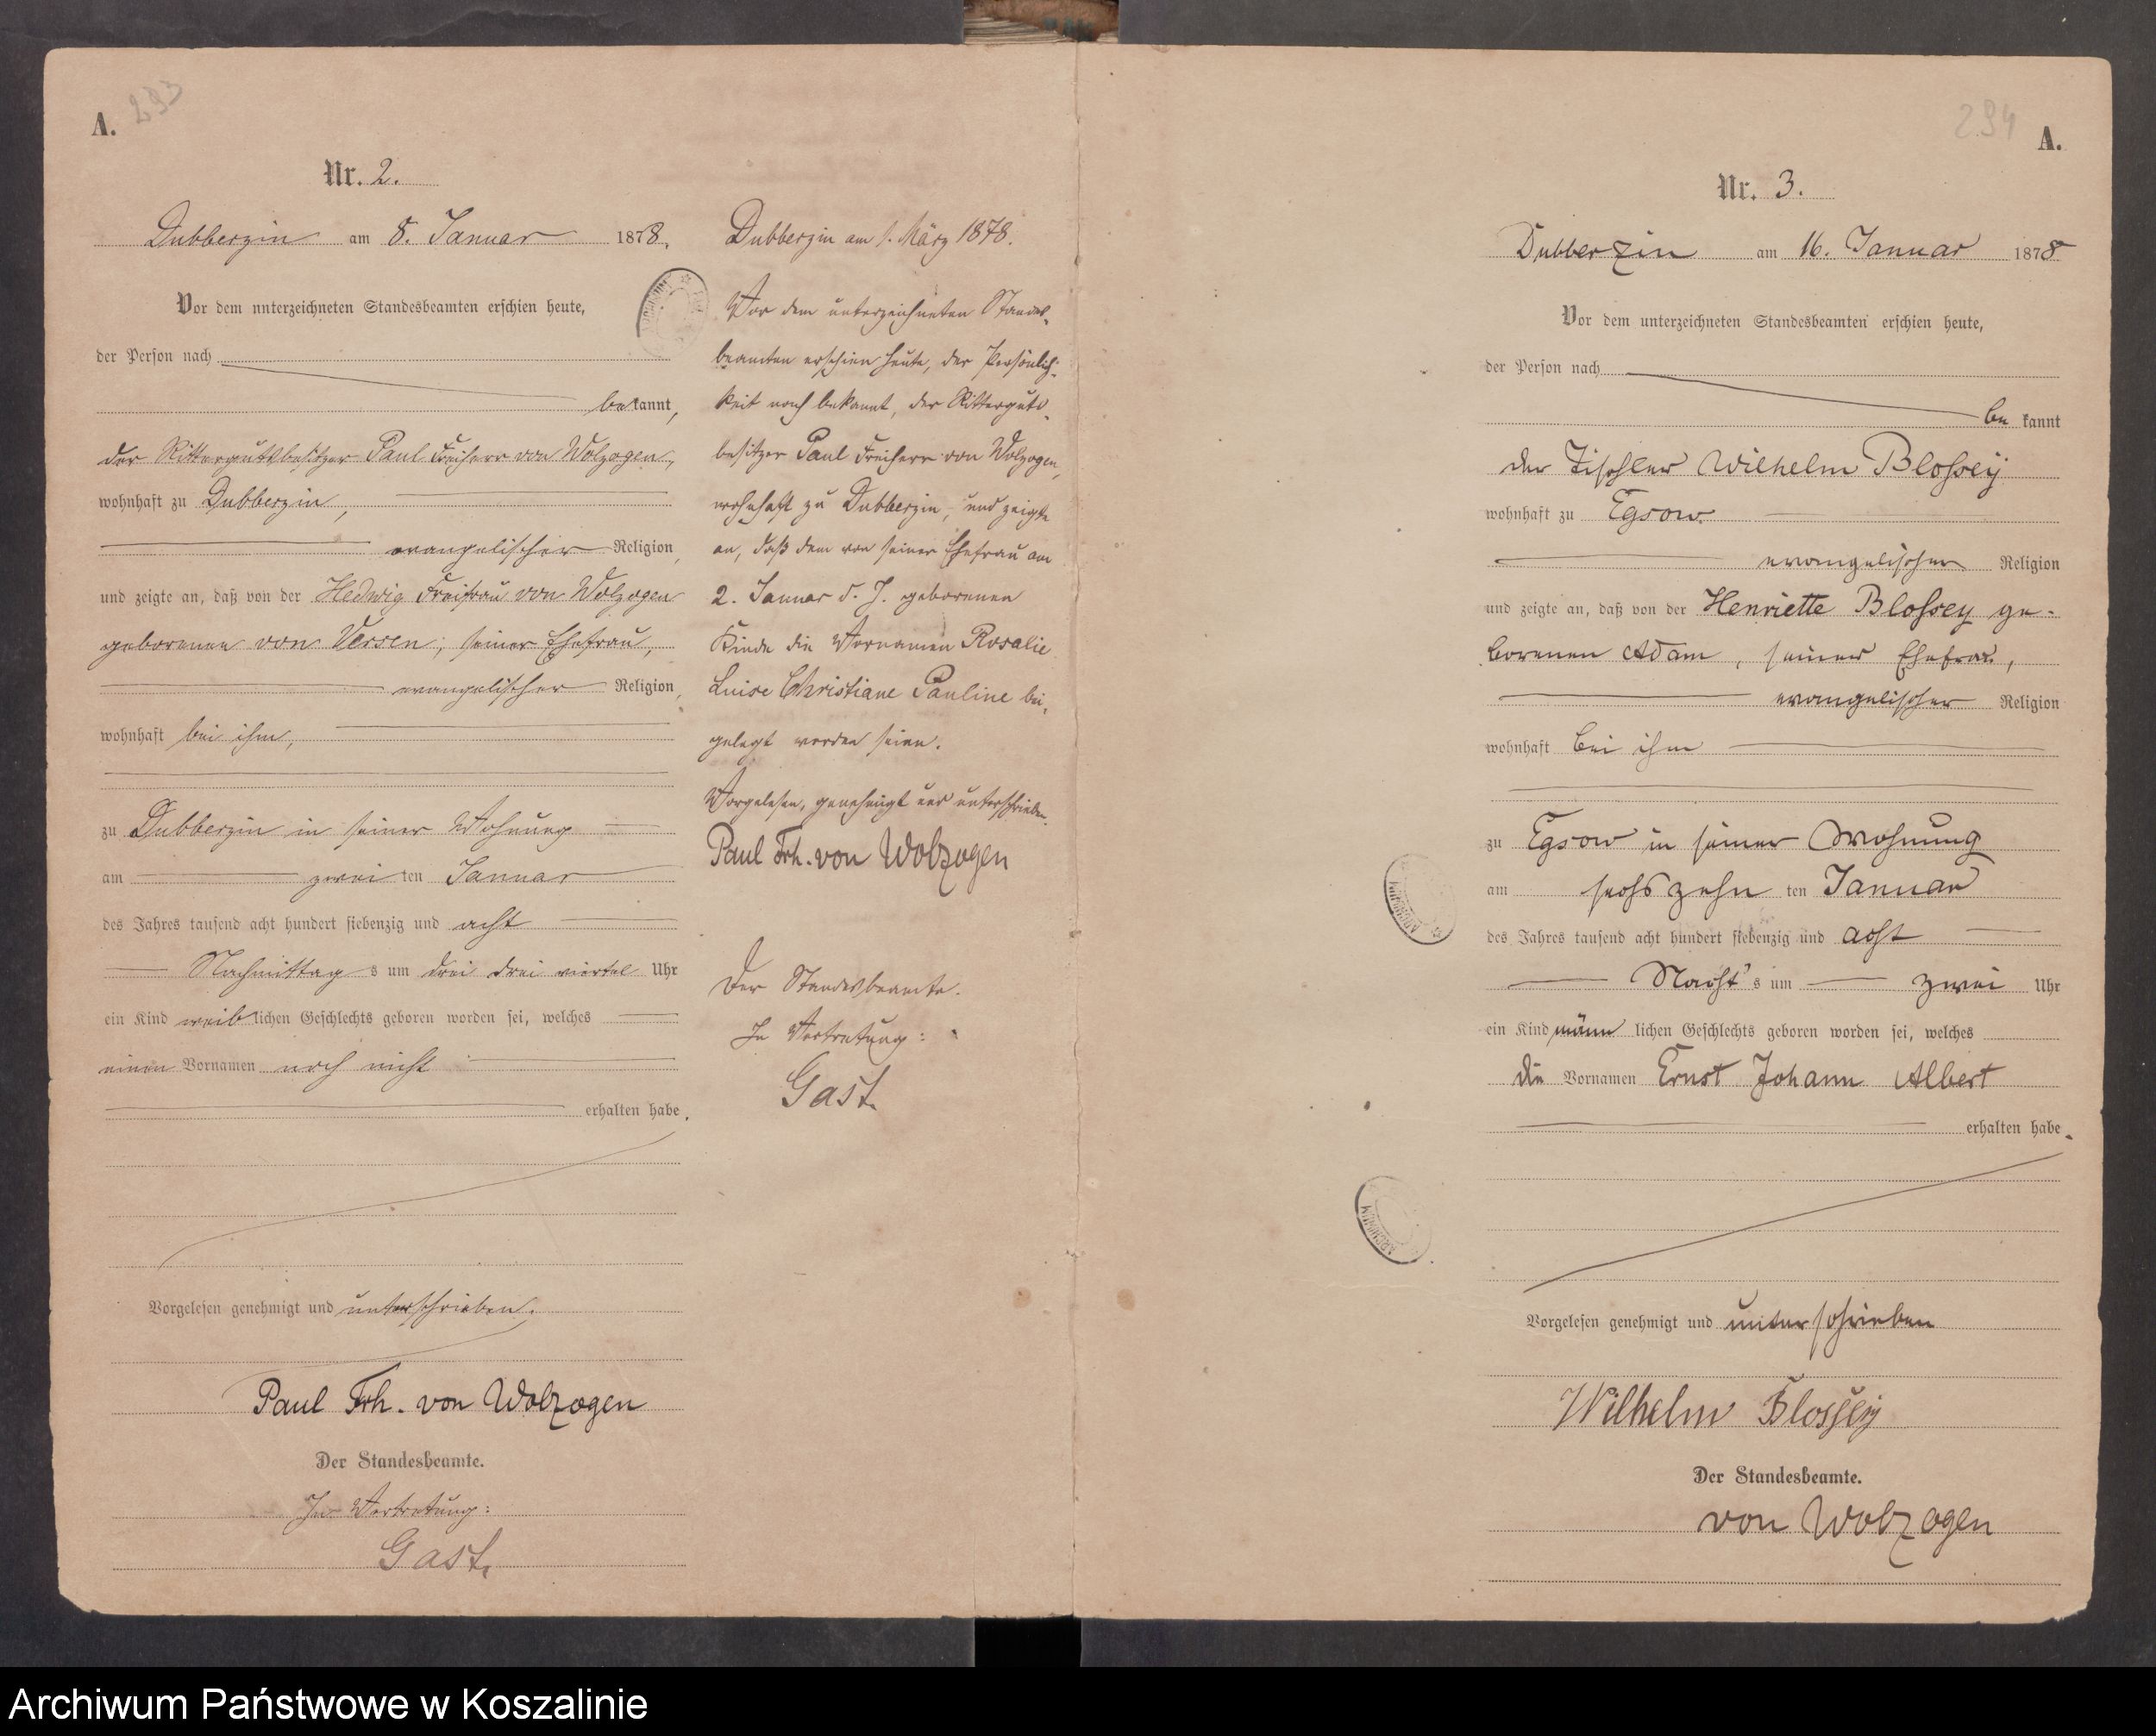 A. 293
Nr. 2.
Dubberzin am 8. Januar 1878.
Vor dem unterzeichneten Standesbeamten erschien heute,
der Person nach
bekannt,
der Rittergutsbesitzer Paul Freiherr von Wolzogen,
wohnhaft zu Dubberzin,
evangelischer Religion,
und zeigte an, daß von der Hedwig Freifrau von Wolzogen
geborenen von Versen, seiner Ehefrau,
evangelischer Religion,
wohnhaft bei ihm,
zu Dubberzin in seiner Wohnung
am zweiten Januar
des Jahres tausend acht hundert siebenzig und acht
Nachmittags um drei drei viertel Uhr
ein Kind weiblichen Geschlechts geboren worden sei, welches
einen Vornamen noch nicht
erhalten habe.
Vorgelesen genehmigt und unterschrieben.
Paul Frh. von Wolzogen
Der Standesbeamte.
In Vertretung:
Gast.
Dubberzin am 1. März 1878.
Vor dem unterzeichneten Standes-
beamten erschien heute, der Persönlich-
keit nach bekannt, der Ritterguts-
besitzer Paul Freiherr von Wolzogen,
wohnhaft zu Dubberzin, und zeigte
an, daß dem von seiner Ehefrau am
2. Januar d. J. geborenen
Kinde die Vornamen Rosalie
Luise Christiane Pauline bei-
gelegt worden seien.
Vorgelesen, genehmigt und unterschrieben.
Paul Frh. von Wolzogen
Der Standesbeamte.
In Vertretung:
Gast.
294 A.
Nr. 3.
Dubberzin am 16. Januar 1878
Vor dem unterzeichneten Standesbeamten erschien heute,
der Person nach
bekannt
der Tischler Wilhelm Blossey
wohnhaft zu Egsow.
evangelischer Religion
und zeigte an, daß von der Henriette Blossey ge-
borenen Adam, seiner Ehefrau,
evangelischer Religion
wohnhaft bei ihm
zu Egsow in seiner Wohnung
am sechszehnten Januar
des Jahres tausend acht hundert siebenzig und acht
Nacht's um zwei Uhr
ein Kind männlichen Geschlechts geboren worden sei, welches
die Vornamen Ernst Johann Albert
erhalten habe.
Vorgelesen genehmigt und unterschrieben
Wilhelm Blossey
Der Standesbeamte.
von Wolzogen
Archiwum Państwowe w Koszalinie